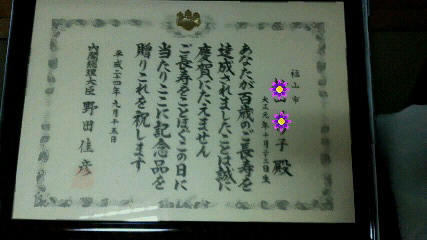 福山市
子 殿
大正元年十月十三日生
あなたが百歳のご長寿を
達成されましたことは誠に
慶賀にたえません
ご長寿をことほぐこの日に
当たりここに記念品を
贈りこれを祝します
平成二十四年九月十五日
内閣総理大臣 野田佳彦